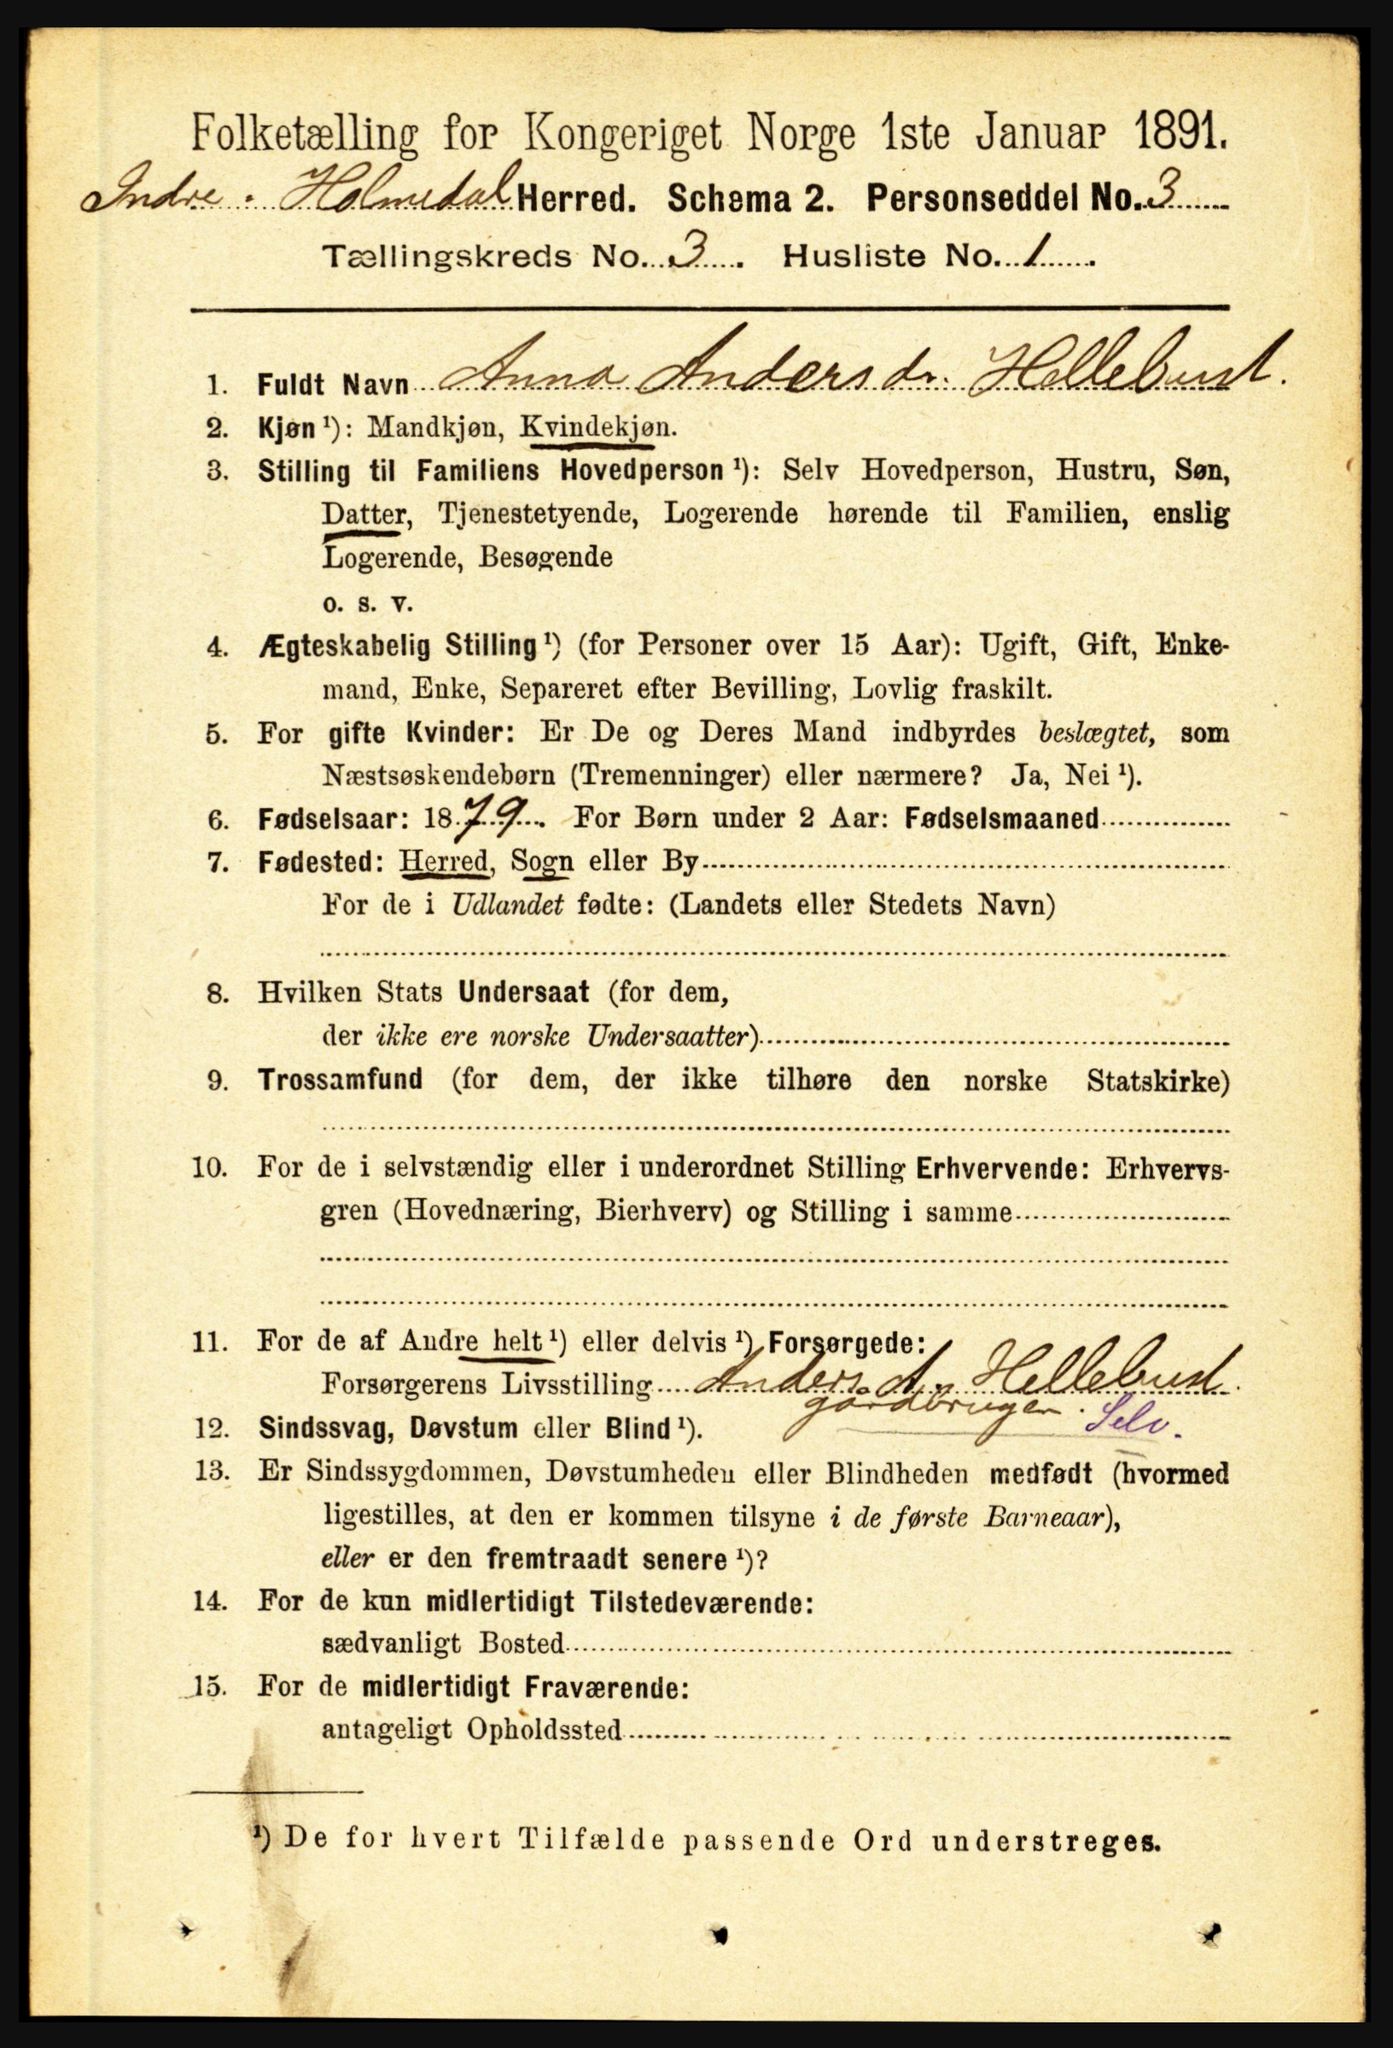 Folketælling for Kongeriget Norge 1ste Januar 1891.
Indre Holmedal Herred. Schema 2. Personseddel No. 3
Tællingskreds No. 3. Husliste No. 1.
1. Fuldt Navn Anna Andersdr. Hellebust.
2. Kjøn ¹): Mandkjøn, Kvindekjøn.
3. Stilling til Familiens Hovedperson ¹): Selv Hovedperson, Hustru, Søn,
Datter, Tjenestetyende, Logerende hørende til Familien, enslig
Logerende, Besøgende
o. s. v.
4. Ægteskabelig Stilling ¹) (for Personer over 15 Aar): Ugift, Gift, Enke-
mand, Enke, Separeret efter Bevilling, Lovlig fraskilt.
5. For gifte Kvinder: Er De og Deres Mand indbyrdes beslægtet, som
Næstsøskendebørn (Tremenninger) eller nærmere? Ja, Nei ¹).
6. Fødselsaar: 1879. For Børn under 2 Aar: Fødselsmaaned
7. Fødested: Herred, Sogn eller By
For de i Udlandet fødte: (Landets eller Stedets Navn)
8. Hvilken Stats Undersaat (for dem,
der ikke ere norske Undersaatter)
9. Trossamfund (for dem, der ikke tilhøre den norske Statskirke)
10. For de i selvstændig eller i underordnet Stilling Erhvervende: Erhvervs-
gren (Hovednæring, Bierhverv) og Stilling i samme
11. For de af Andre helt ¹) eller delvis ¹) Forsørgede:
Forsørgerens Livsstilling Anders A. Hellebust.
gårdbruger. Selv.
12. Sindssvag, Døvstum eller Blind ¹).
13. Er Sindssygdommen, Døvstumheden eller Blindheden medfødt (hvormed
ligestilles, at den er kommen tilsyne i de første Barneaar),
eller er den fremtraadt senere ¹)?
14. For de kun midlertidigt Tilstedeværende:
sædvanligt Bosted
15. For de midlertidigt Fraværende:
antageligt Opholdssted
¹) De for hvert Tilfælde passende Ord understreges.